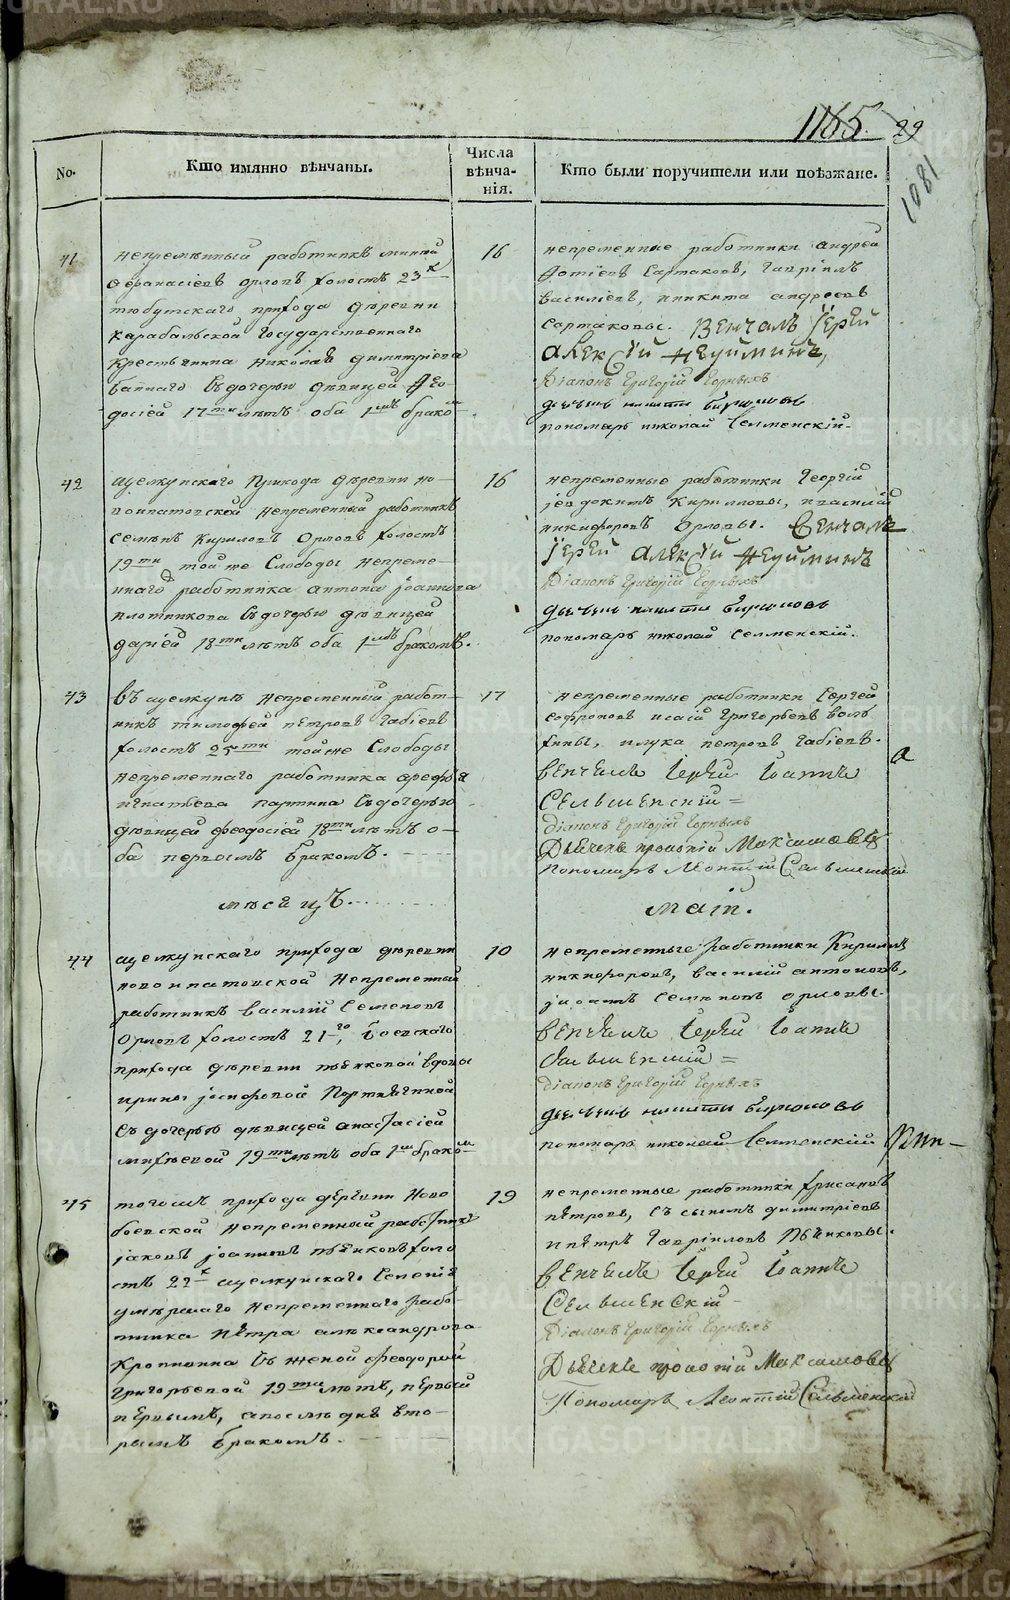 1165. 29
1081
No.
Кто имянно вѣнчаны.
Числа вѣнча-нія.
Кто были поручители или поѣзжане.
41
непремѣнный работникъ
Афанасіевъ Орловъ холостъ 23х
тюбукскаго прихода деревни
карабольской Государственнаго
крестьянина Николая Димитріева
съ дочерью дѣвицей Ѳео-
досіей 17ти лѣтъ оба 1мъ бракомъ
16
непременные работники Андрей
Сартаковъ, Гавріилъ
Василіевъ, Никита Андреевъ
Сартаковы. Венчалъ Іерей
Алексій Неуйминъ,
Діаконъ Григорій Горныхъ
дьячекъ никита бирюковъ
пономарь николай Селменскій.
42
щелкунскаго прихода деревни но-
воипатовской непременный работникъ
Семенъ Кириловъ Орловъ холостъ
19ти той же Слободы непреме-
ннаго работника антона іоаннова
плотникова съ дочерью девицей
даріей 18ти лѣтъ оба 1мъ бракомъ.
16
непременные работники Георгій
іевдокимъ Кириловы, и василій
никифоровъ Орловы. Венчалъ
Іерей Алексій Неуйминъ
Діаконъ Григорій Горныхъ
дьячекъ никита бирюковъ
пономарь николай Селменскій.
43
въ щелкунѣ непременный работ-
никъ тимофей петровъ Бабіевъ
холостъ 25ти той же Слободы
непременнаго работника арефья
игнатьева партина съ дочерью
дѣвицей феодосіей 18ти лѣтъ о-
ба первымъ бракомъ.
17
непременные работники Сергей
Софроновъ исаій Григорьевъ
и лука петровъ Бабіевъ.
Венчалъ Іерей Іоаннъ
Сельменскій
діаконъ Григорій Горныхъ
Дьячекъ прокопій Максимовъ
Пономарь Леонтій Сельменскій
мѣсяцъ
маій.
44
щелкунскаго прихода деревни
новоипатовской Непременный
работникъ василій Семеновъ
Орловъ холостъ 21го, боевскаго
прихода деревни пьянковой вдовы
ирины іосифовой
съ дочерью дѣвицей анастасіей
михѣевой 19ти лѣтъ оба 1мъ бракомъ
10
непременные работники Кириллъ
никифоровъ, василій антоновъ,
Семеновъ орловы.
Венчалъ Іерей Іоаннъ
Сельменскій
діаконъ Григорій Горныхъ
дьячекъ никита бирюковъ
пономарь николай Селменскій
45
тогожъ прихода деревни Ново
боевской непременный работникъ
іаковъ іоанновъ пьянковъ холо
стъ 22х щелкунскаго Селенія
умѣршаго непременнаго рабо-
тника Петра александрова
Кропинина съ женой Феодорой
Григорьевой 19ти лѣтъ, первый
первымъ, а последня вто-
рымъ бракомъ.
19
непременные работники Хрисанфъ
петровъ, съ сыномъ димитріевъ
и петръ Гавріиловъ Пьянковы.
Венчалъ Іерей Іоаннъ
Сельменскій
Діаконъ Григорій Горныхъ
Дьячекъ прокопій Максимовъ
Пономарь Леонтій Сельменскій
METRIKI.GASO-URAL.RU